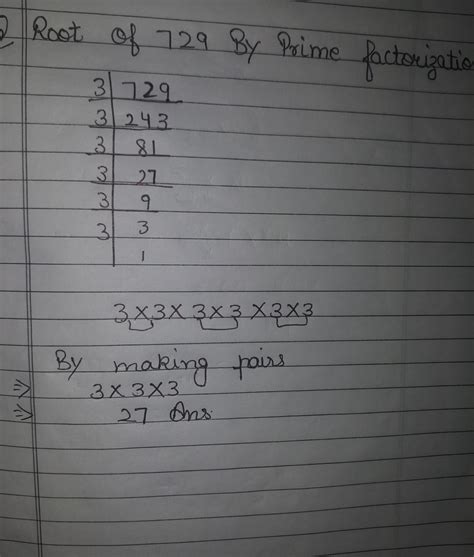 Root of 729 By Prime factorizatio
3 729
3 243
3 81
3 27
3 9
3 3
1
3×3×3×3×3×3
By making pairs
⇒ 3×3×3
⇒ 27 Ans